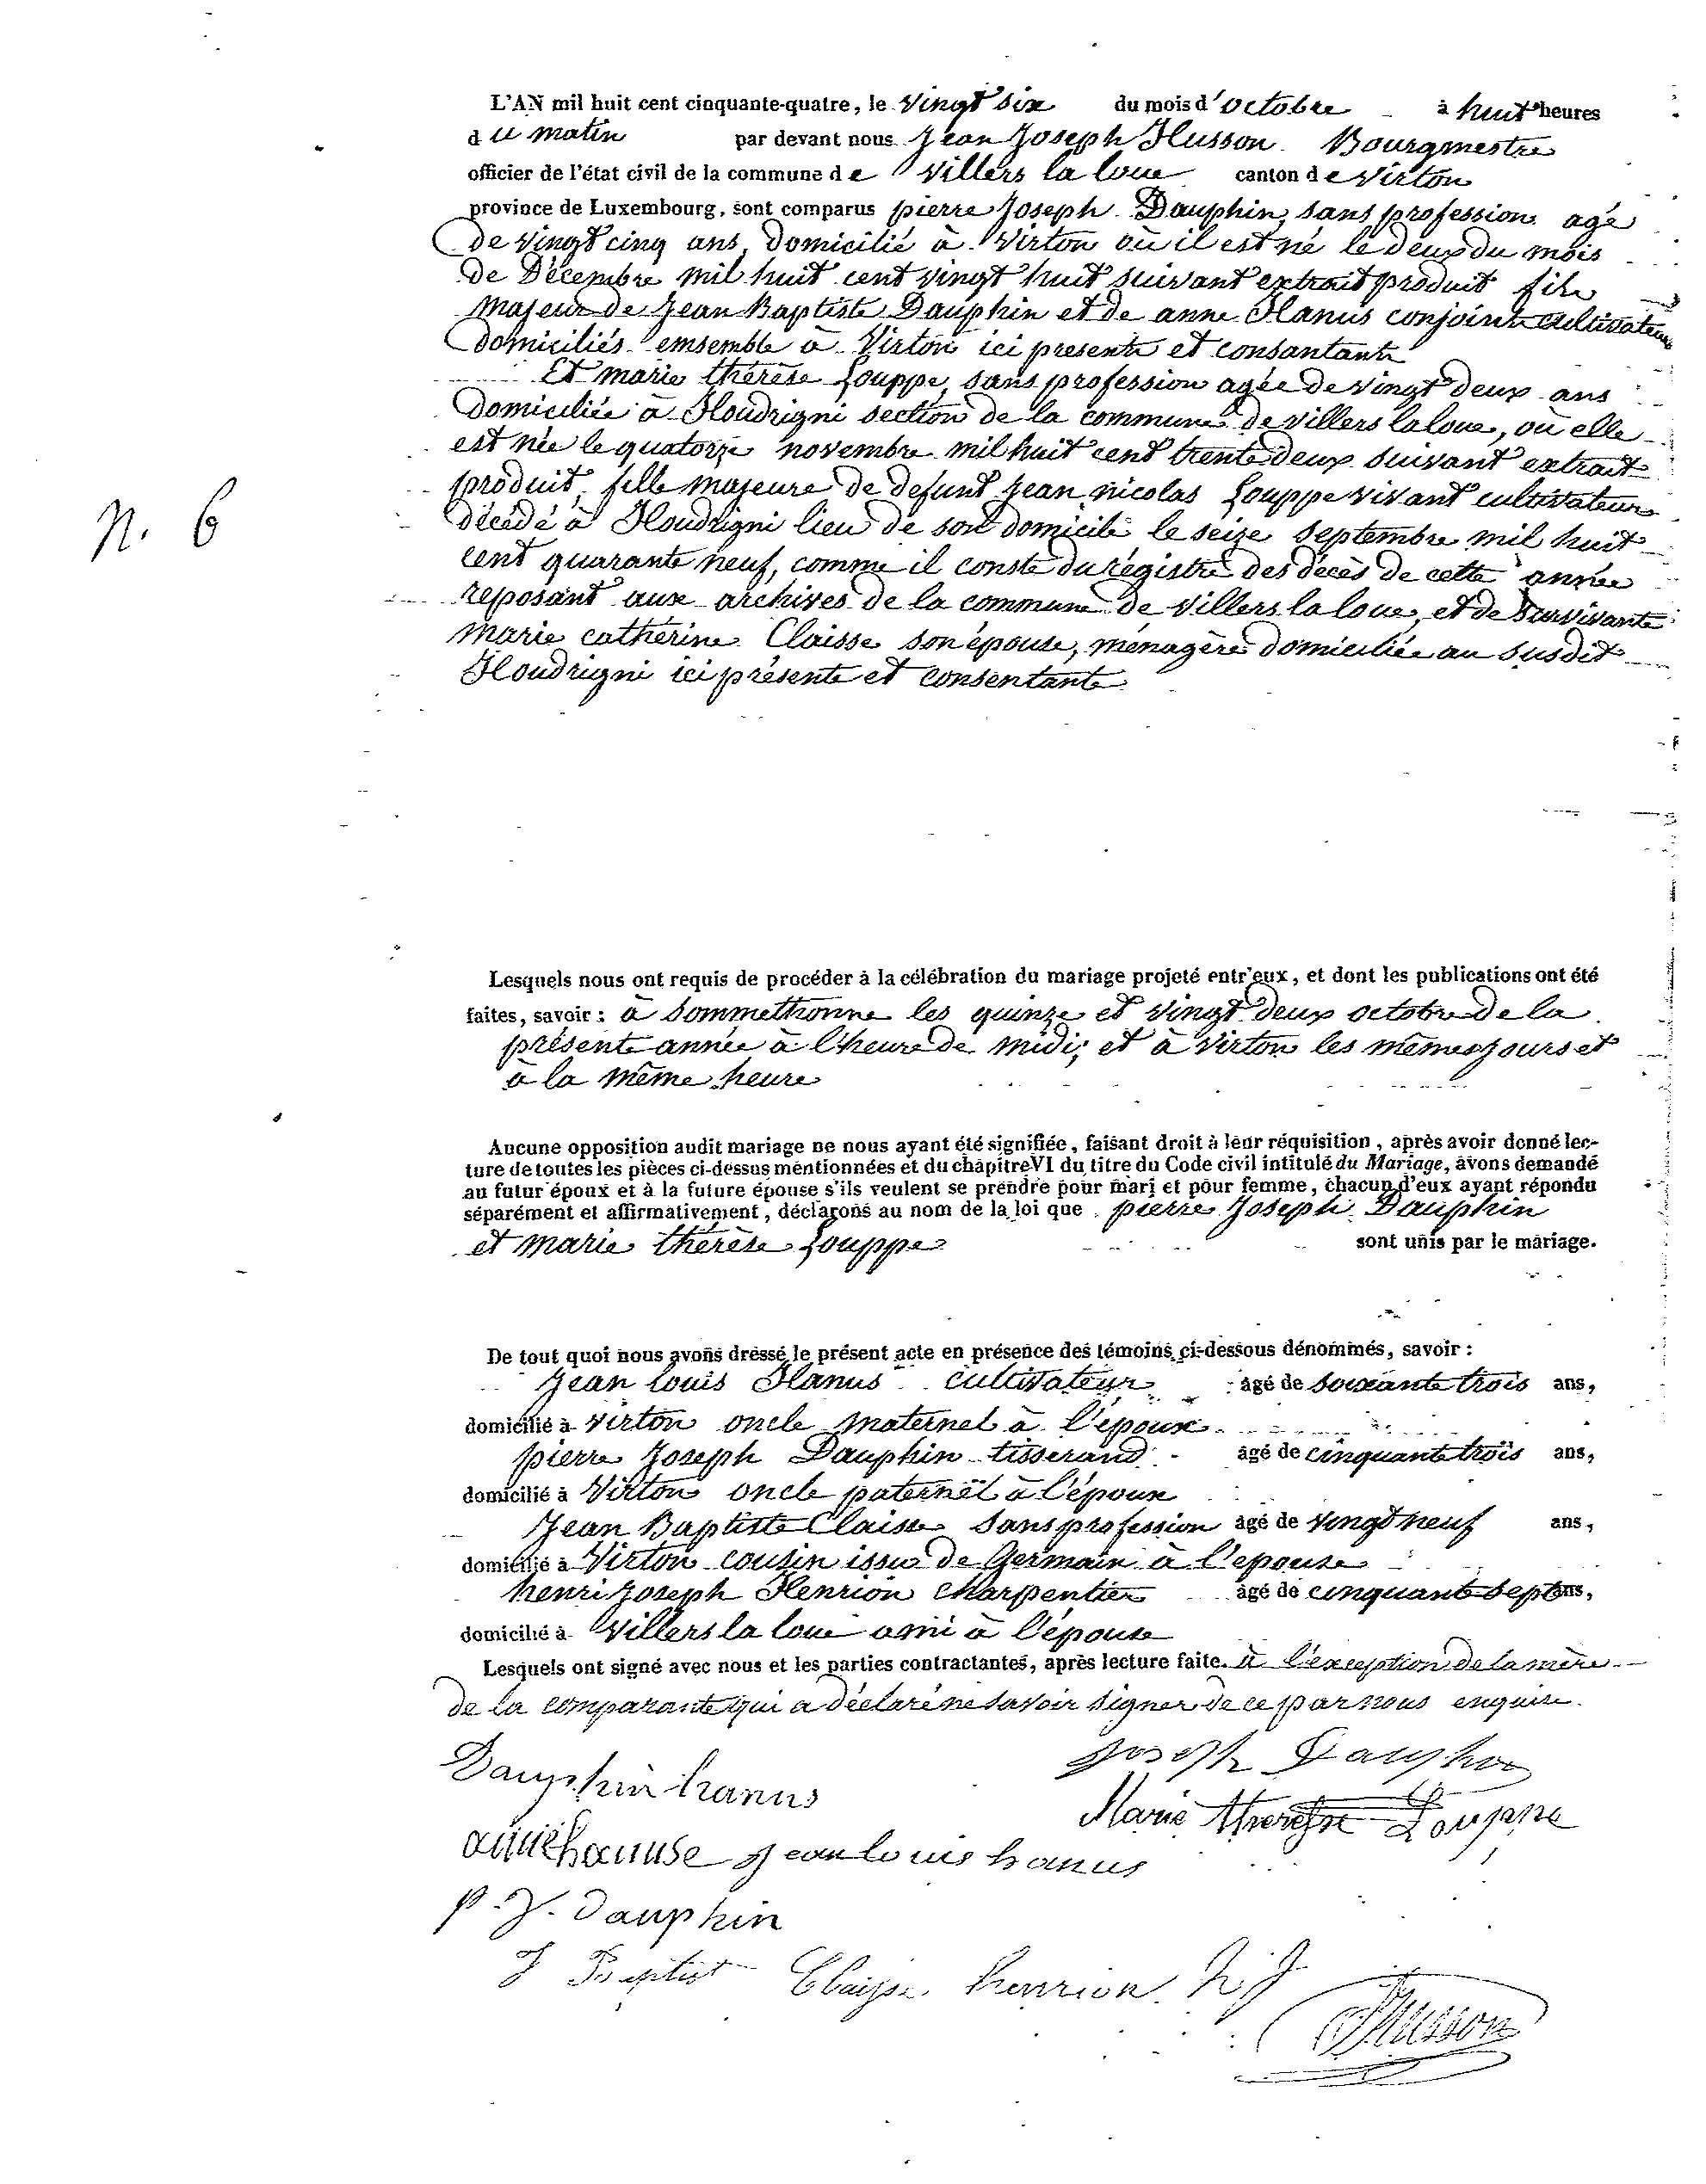 L'AN mil huit cent cinquante-quatre, le vingt six du mois d'octobre à huit heures
du matin par devant nous Jean Joseph Husson Bourgmestre
officier de l'état civil de la commune de Villers la loue canton de Virton
province de Luxembourg, sont comparus pierre Joseph Dauphin, sans profession agé
de vingt cinq ans, domicilié à Virton où il est né le deux du mois
de Décembre mil huit cent vingt huit suivant extrait produit fils
majeur de Jean Baptiste Dauphin et de anne Hanus conjoints cultivateurs
domiciliés emsemble à Virton ici presents et consantants
Et marie thérèse Louppe, sans profession agée de vingt deux ans
domiciliée à Houdrigni section de la commune de villers la loue, où elle
est née le quatorze novembre mil huit cent trente deux suivant extrait
produit, fille majeure de defunt Jean nicolas Louppe vivant cultivateur
décédé à Houdrigni lieu de son domicile le seize septembre mil huit
N. 6
cent quarante neuf, comme il conste du régistre des décès de cette année
reposant aux archives de la commune de Villers la loue, et de survivante
marie cathérine Claisse son épouse, ménagère domiciliée au susdit
Houdrigni ici présente et consentante
Lesquels nous ont requis de procéder à la célébration du mariage projeté entr'eux, et dont les publications ont été
faites, savoir : à Sommethonne les quinze et vingt deux octobre de la
présente année à l'heure de midi; et à Virton les mêmes jours et
à la même heure
Aucune opposition audit mariage ne nous ayant été signifiée, faisant droit à leur réquisition, après avoir donné lec-
ture de toutes les pièces ci-dessus mentionnées et du chapitre VI du titre du Code civil intitulé du Mariage, avons demandé
au futur époux et à la future épouse s'ils veulent se prendre pour mari et pour femme, chacun d'eux ayant répondu
séparément et affirmativement, déclarons au nom de la loi que pierre Joseph Dauphin
et marie thérèse Louppe sont unis par le mariage.
De tout quoi nous avons dressé le présent acte en présence des témoins ci-dessous dénommés, savoir :
Jean louis Hanus cultivateur agé de soixante trois ans,
domicilié à virton oncle maternel à l'époux
pierre Joseph Dauphin tisserand agé de cinquante trois ans,
domicilié à Virton oncle paternel à l'époux
Jean Baptiste Claisse sans profession agé de vingt neuf ans,
domicilié à Virton cousin issu de Germain à l'epouse
henri Joseph Henrion charpentier agé de cinquante sept ans,
domicilié à Villers la loue ami à l'épouse
Lesquels ont signé avec nous et les parties contractantes, après lecture faite. à l'exception de la mère
de la comparante qui a déclaré ne savoir signer de ce par nous enquise.
Joseph Dauphin
Dauphin hanus
Marie therese Louppe
anne hanuse Jean louis hanus
P. J. Dauphin
J Baptist Claisse henrion h J
Husson